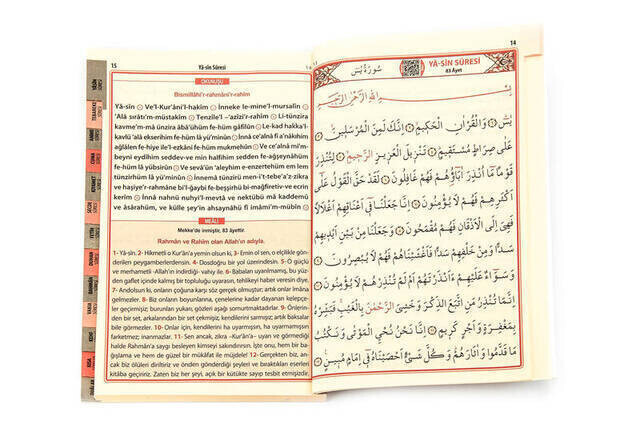 15 Yâ-sîn Sûresi
OKUNUŞU
Bismillâhi'r-rahmâni'r-rahîm
Yâ-sîn Ve'l-Kur'âni'l-hakîm İnneke le-mine'l-mursalîn
'Alâ sırâtı'm-müstakîm Tenzîle'l-'azîzi'r-rahîm Li-tünzira
kavme'm-mâ ünzira âbâühüm fe-hüm gâfilûn Le-kad hakka'l-
kavlü 'alâ ekserihim fe-hüm lâ yü'minûn İnnâ ce'alnâ fî a'nâkihim
ağlâlen fe-hiye ile'l-ezkâni fe-hüm mukmehûn Ve ce'alnâ mi'm-
beyni eydîhim seddev-ve min halfihim sedden fe-ağşeynâhüm
fe-hüm lâ yübsirûn Ve sevâün 'aleyhim e-enzertehüm em lem
tünzirhüm lâ yü'minûn İnnemâ tünziru meni't-tebe'a'z-zikra
ve haşiye'r-rahmâne bi'l-ğaybi fe-beşşirhü bi-mağfiretiv-ve ecrin
kerîm İnnâ nahnü nuhyi'l-mevtâ ve nektübü mâ kaddemû
ve âsârahüm, ve külle şey'in ahsaynâhü fî imâmi'm-mübîn
MEÂLİ
Mekke'de inmiştir, 83 âyettir.
Rahmân ve Rahîm olan Allah'ın adıyla.
1- Yâ-sîn. 2- Hikmetli o Kur'ân'a yemin olsun ki, 3- Emin ol sen, o elçilikle gönde-
rilen peygamberlerdensin. 4- Dosdoğru bir yol üzerindesin. 5- O güçlü
ve merhametli -Allah'ın indirdiği- vahiy ile. 6- Babaları uyarılmamış, bu yüz-
den gaflet içinde kalmış bir topluluğu uyarasın, tehlikeyi haber veresin diye.
7- Andolsun ki, onların çoğuna karşı söz gerçek olmuştur; artık onlar imâna
gelmezler. 8- Biz onların boyunlarına, çenelerine kadar dayanan kelepçe-
ler geçirmişiz; burunları yukarı, gözleri aşağı somurtmaktadırlar. 9- Önlerin-
den bir set, arkalarından bir set çekmişiz, kendilerini sarmışız; artık baksalar
bile görmezler. 10- Onları, için, kendilerini ha uyarmışsın, ha uyarmamışsın
farketmez; inanmazlar. 11- Sen ancak, zikra -Kur'ân'a- uyan ve görmediği
halde Rahmân'a saygı besleyen kimseyi sakındırırsın. İşte onu, hem bir ba-
ğışlama ve hem de güzel bir mükâfat ile müjdele! 12- Gerçekten biz, an-
cak biz ölüleri diriltiriz ve önden gönderdiği şeyleri ve bıraktıkları eserleri
kitâba geçiririz. Zaten biz her şeyi, açık bir kütükte sayıp tesbit etmişizdir.
14
سُورَةُ يٰسٓ YÂ-SÎN SÛRESİ
83 Âyet
بِسْمِ اللّٰهِ الرَّحْمٰنِ الرَّحِيمِ
يٰسٓ وَالْقُرْاٰنِ الْحَكِيمِ اِنَّكَ لَمِنَ الْمُرْسَلِينَ
عَلٰى صِرَاطٍ مُسْتَقِيمٍ تَنْزِيلَ الْعَزِيزِ الرَّحِيمِ لِتُنْذِرَ
قَوْمًا مَٓا اُنْذِرَ اٰبَٓاؤُهُمْ فَهُمْ غَافِلُونَ لَقَدْ حَقَّ الْقَوْلُ عَلٰٓى
اَكْثَرِهِمْ فَهُمْ لَا يُؤْمِنُونَ اِنَّا جَعَلْنَا فِٓى اَعْنَاقِهِمْ اَغْلَالًا
فَهِىَ اِلَى الْاَذْقَانِ فَهُمْ مُقْمَحُونَ وَجَعَلْنَا مِنْ بَيْنِ اَيْدِيهِمْ
سَدًّا وَمِنْ خَلْفِهِمْ سَدًّا فَاَغْشَيْنَاهُمْ فَهُمْ لَا يُبْصِرُونَ
وَسَوَٓاءٌ عَلَيْهِمْ ءَاَنْذَرْتَهُمْ اَمْ لَمْ تُنْذِرْهُمْ لَا يُؤْمِنُونَ
اِنَّمَا تُنْذِرُ مَنِ اتَّبَعَ الذِّكْرَ وَخَشِىَ الرَّحْمٰنَ بِالْغَيْبِ فَبَشِّرْهُ
بِمَغْفِرَةٍ وَاَجْرٍ كَرِيمٍ اِنَّا نَحْنُ نُحْيِ الْمَوْتٰى وَنَكْتُبُ
مَا قَدَّمُوا وَاٰثَارَهُمْ وَكُلَّ شَىْءٍ اَحْصَيْنَاهُ فِٓى اِمَامٍ مُبِينٍ